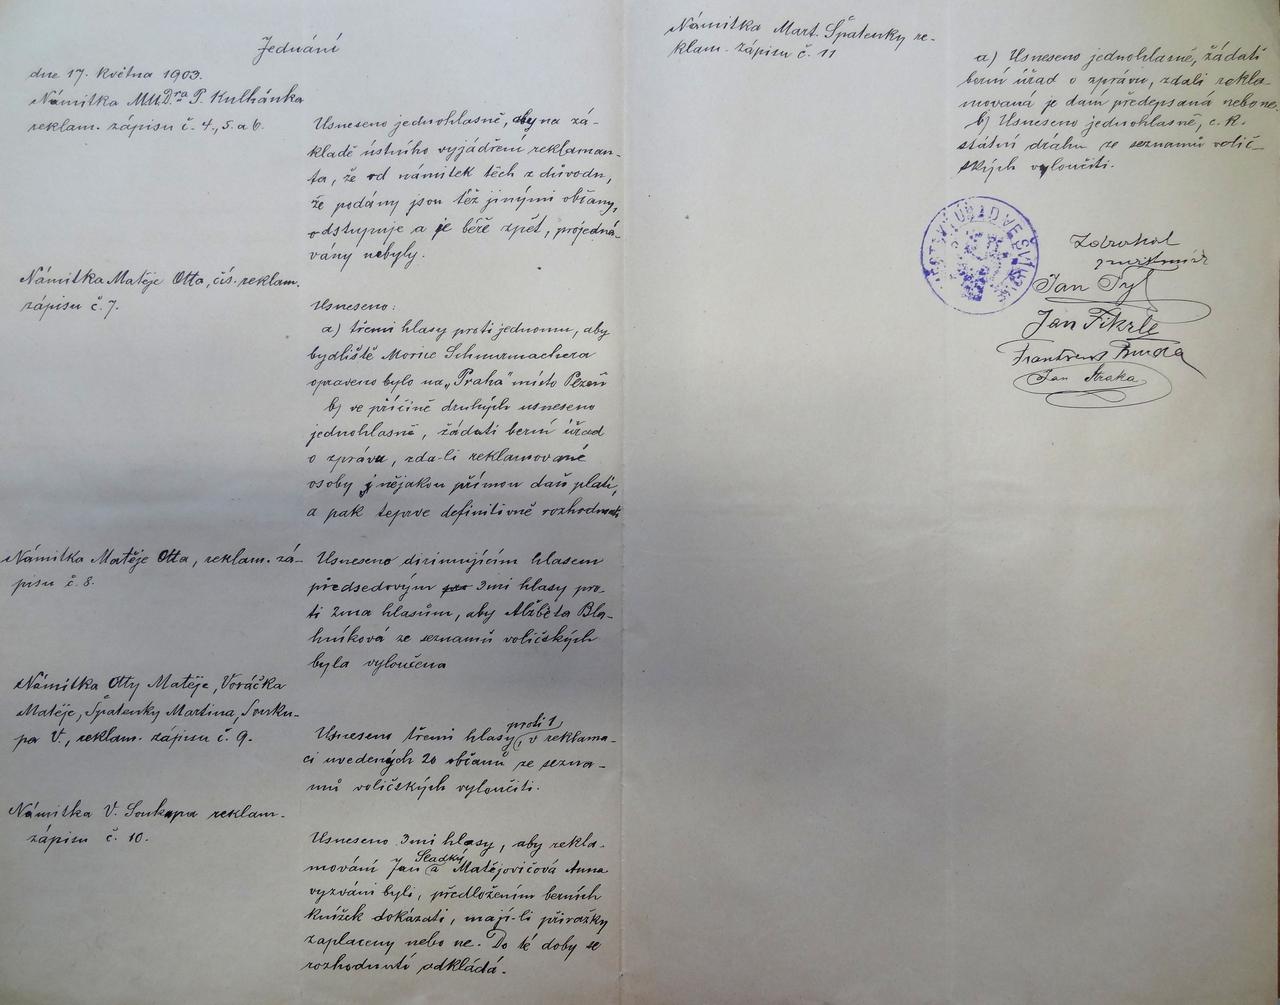 Jednání
dne 17. května 1903.
Námitka MUDra P. Kulhánka
reklam. zápisu č. 4., 5. a 6.
Usneseno jednohlasně, aby na zá-
kladě ústního vyjádření reklaman-
ta, že od námitek těch z důvodu,
že podány jsou též jinými občany,
odstupuje a je béře zpět, projedná-
vány nebyly.
Námitka Matěje Otta, čís. reklam.
zápisu č. 7.
Usneseno:
a) třemi hlasy proti jednomu, aby
bydliště Morice Schnurmachera
opraveno bylo na „Praha" místo Plzeň
b) ve příčině druhých usneseno
jednohlasně, žádati berní úřad
o zprávu, zda-li reklamované
osoby nějakou přímou daň platí,
a pak teprve definitivně rozhodnouti
Námitka Matěje Otta, reklam. zá-
pisu č. 8.
Usneseno dirimujícím hlasem
předsedovým 3mi hlasy pro-
ti 2ma hlasům, aby Alžběta Bla-
hníková ze seznamů voličských
byla vyloučena
Námitka Otty Matěje, Voráčka
Matěje, Špatenky Martina, Souku-
pa V., reklam. zápisu č. 9.
Usneseno třemi hlasy proti 1, v reklama-
ci uvedených 20 občanů ze sezna-
mů voličských vyloučiti.
Námitka V. Soukupa reklam.
zápisu č. 10.
Usneseno 3mi hlasy, aby rekla-
mování Jan Sladký a Matějovičová Anna
vyzváni byli, předložením berních
knížek dokázati, mají-li přirážky
zaplaceny nebo ne. Do té doby se
rozhodnutí odkládá.
Námitka Mart. Špatenky re-
klam. zápisu č. 11
a) Usneseno jednohlasně, žádati
berní úřad o zprávu, zdali rekla-
movaná je daň předepsaná nebo ne.
b) Usneseno jednohlasně, c. k.
státní dráhu ze seznamů volič-
ských vyloučiti.
Jan Tyl
Jan Fikrle
František Bouda
Jan Straka